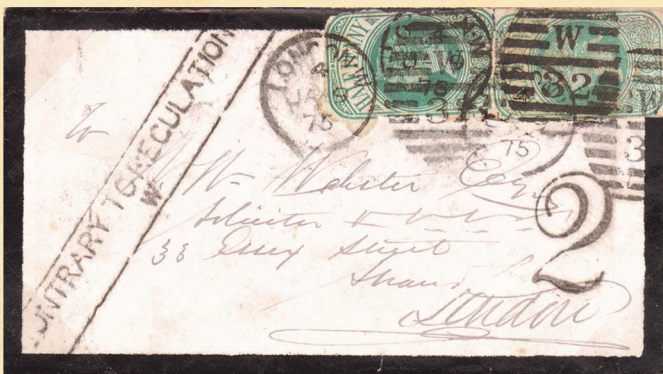 CONTRARY TO REGULATION
W
LONDON
4
JA 9
75
HALFPENNY
W
32
W
3
75
3
2
To
Wm Webster Esq
Solicitor
38 Essex Street
Strand
London